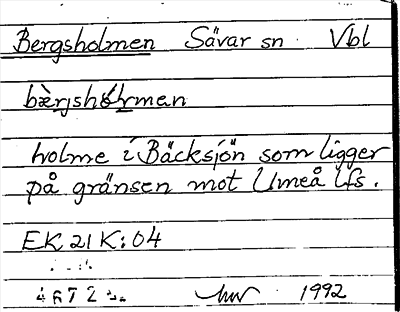 Bergsholmen Sävar sn. Vbl
holme i Bäcksjön som ligger
på gränsen mot Umeå lfs.
EK 21 K:04
1992